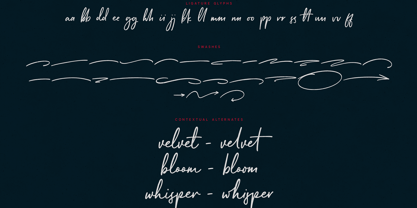 LIGATURE GLYPHS
aa bb dd ee gg hh ii jj kk ll mm nn oo pp rr ss tt uu vv ff
SWASHES
CONTEXTUAL ALTERNATES
velvet - velvet
bloom - bloom
whisper - whisper